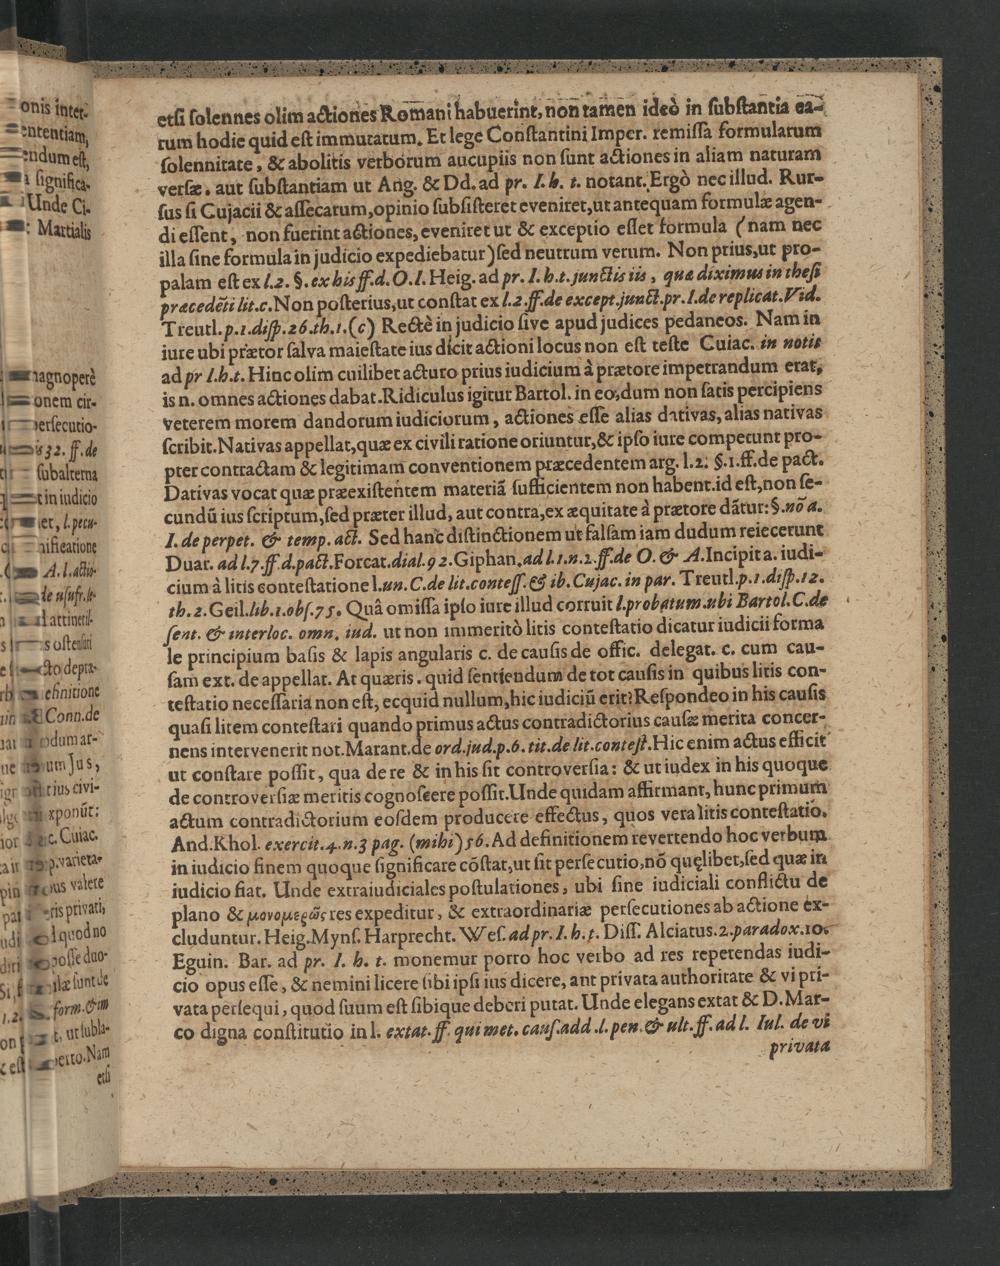 etsi solennes olim actiones Romani habuerint, non tamen ideò in substantia ea-
rum hodie quid est immutatum. Et lege Constantini Imper. remissa formularum
solennitate, & abolitis verborum aucupiis non sunt actiones in aliam naturam
versæ. aut substantiam ut Ang. & Dd. ad pr. I. h. t. notant. Ergò nec illud. Rur-
sus si Cujacii & assecarum, opinio subsisteret eveniret, ut antequam formulæ agen-
di essent, non fuerint actiones, eveniret ut & exceptio esset formula (nam nec
illa sine formula in judicio expediebatur) sed neutrum verum. Non prius, ut pro-
palam est ex l. 2. §. ex his ff. d. O. I. Heig. ad pr. I. h. t. junctis iis, quæ diximus in thesi
præcedẽti lit. c. Non posterius, ut constat ex l. 2. ff. de except. junct. pr. I. de replicat. Vid.
Treutl. p. 1. disp. 26. th. 1. (c) Rectè in judicio sive apud judices pedaneos. Nam in
iure ubi prætor salva maiestate ius dicit actioni locus non est teste Cuiac. in notis
ad pr I. h. t. Hinc olim cuilibet acturo prius iudicium à prætore impetrandum erat,
is n. omnes actiones dabat. Ridiculus igitur Bartol. in eo, dum non satis percipiens
veterem morem dandorum iudiciorum, actiones esse alias dativas, alias nativas
scribit. Nativas appellat, quæ ex civili ratione oriuntur, & ipso iure competunt pro-
pter contractam & legitimam conventionem præcedentem arg. l. 2. §. 1. ff. de pact.
Dativas vocat quæ præexistentem materiã sufficientem non habent. id est, non se-
cundũ ius scriptum, sed præter illud, aut contra, ex æquitate à prætore dãtur: §. nõ a.
I. de perpet. & temp. act. Sed hanc distinctionem ut falsam iam dudum reiecerunt
Duar. ad l. 7. ff. d. pact. Forcat. dial. 92. Giphan. ad l. 1. n. 2. ff. de O. & A. Incipit a. iudi-
cium à litis contestatione l. un. C. de lit. contess. & ib. Cujac. in par. Treutl. p. 1. disp. 12.
th. 2. Geil. lib. 1. obs. 75. Quâ omissa ipso iure illud corruit l. probatum. ubi Bartol. C. de
sent. & interloc. omn. iud. ut non immeritò litis contestatio dicatur iudicii forma
le principium basis & lapis angularis c. de causis de offic. delegat. c. cum cau-
sam ext. de appellat. At quæris. quid sentiendum de tot causis in quibus litis con-
testatio necessaria non est, ecquid nullum, hic iudiciũ erit? Respondeo in his causis
quasi litem contestari quando primus actus contradictorius causæ merita concer-
nens intervenerit not. Marant. de ord. jud. p. 6. tit. de lit. contest. Hic enim actus efficit
ut constare possit, qua de re & in his sit controversia: & ut iudex in his quoque
de controversiæ meritis cognoscere possit. Unde quidam affirmant, hunc primum
actum contradictorium eosdem producere effectus, quos vera litis contestatio.
And. Khol. exercit. 4. n. 3 pag. (mihi) 56. Ad definitionem revertendo hoc verbum
in iudicio finem quoque significare cõstat, ut sit persecutio, nõ quęlibet, sed quæ in
iudicio fiat. Unde extraiudiciales postulationes, ubi sine iudiciali conflictu de
plano & μονομερῶς res expeditur, & extraordinariæ persecutiones ab actione ex-
cluduntur. Heig. Myns. Harprecht. Wes. ad pr. I. h. t. Diss. Alciatus. 2. paradox. 10.
Eguin. Bar. ad pr. I. h. t. monemur porro hoc verbo ad res repetendas iudi-
cio opus esse, & nemini licere sibi ipsi ius dicere, aut privata authoritate & vi pri-
vata persequi, quod suum est sibique deberi putat. Unde elegans extat & D. Mar-
co digna constitutio in l. extat. ff. qui met. caus. add. l. pen. & ult. ff. ad l. Iul. de vi
privata
onis inter-
ententiam,
endum est,
significa-
Unde Ci-
: Martialis
magnoperè
onem cir-
persecutio-
32. ff. de
subalterna
t in iudicio
et, l. pecu-
nificatione
A. l. actio-
de usufr.
attineri
s ostensuri
cto depra-
efinitione
Conn. de
odum ar-
um Jus,
tius civi-
xponũt:
c. Cuiac.
p. varieta-
ous valere
ris privati,
l quod no
posse duo-
ilæ sunt de
form. & in
t, ut subla-
erto. Nam
etsi